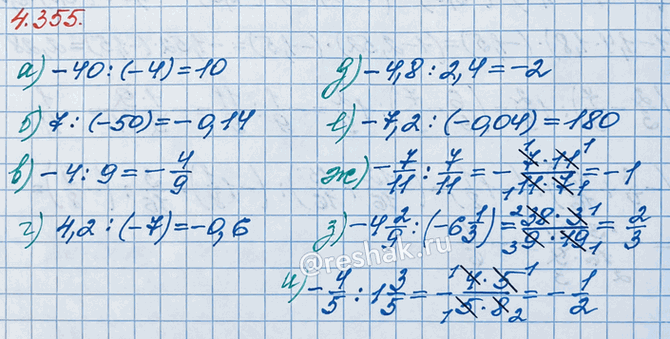 4.355.
а) -40 : (-4) = 10
б) 7 : (-50) = -0,14
в) -4 : 9 = -4/9
г) 4,2 : (-7) = -0,6
д) -4,8 : 2,4 = -2
е) -7,2 : (-0,04) = 180
ж) -7/11 : 7/11 = -(7·11)/(11·7) = -1
з) -4 2/9 : (-6 1/3) = (38·3)/(9·19) = 2/3
и) -4/5 : 1 3/5 = -(4·5)/(5·8) = -1/2
@reshak.ru